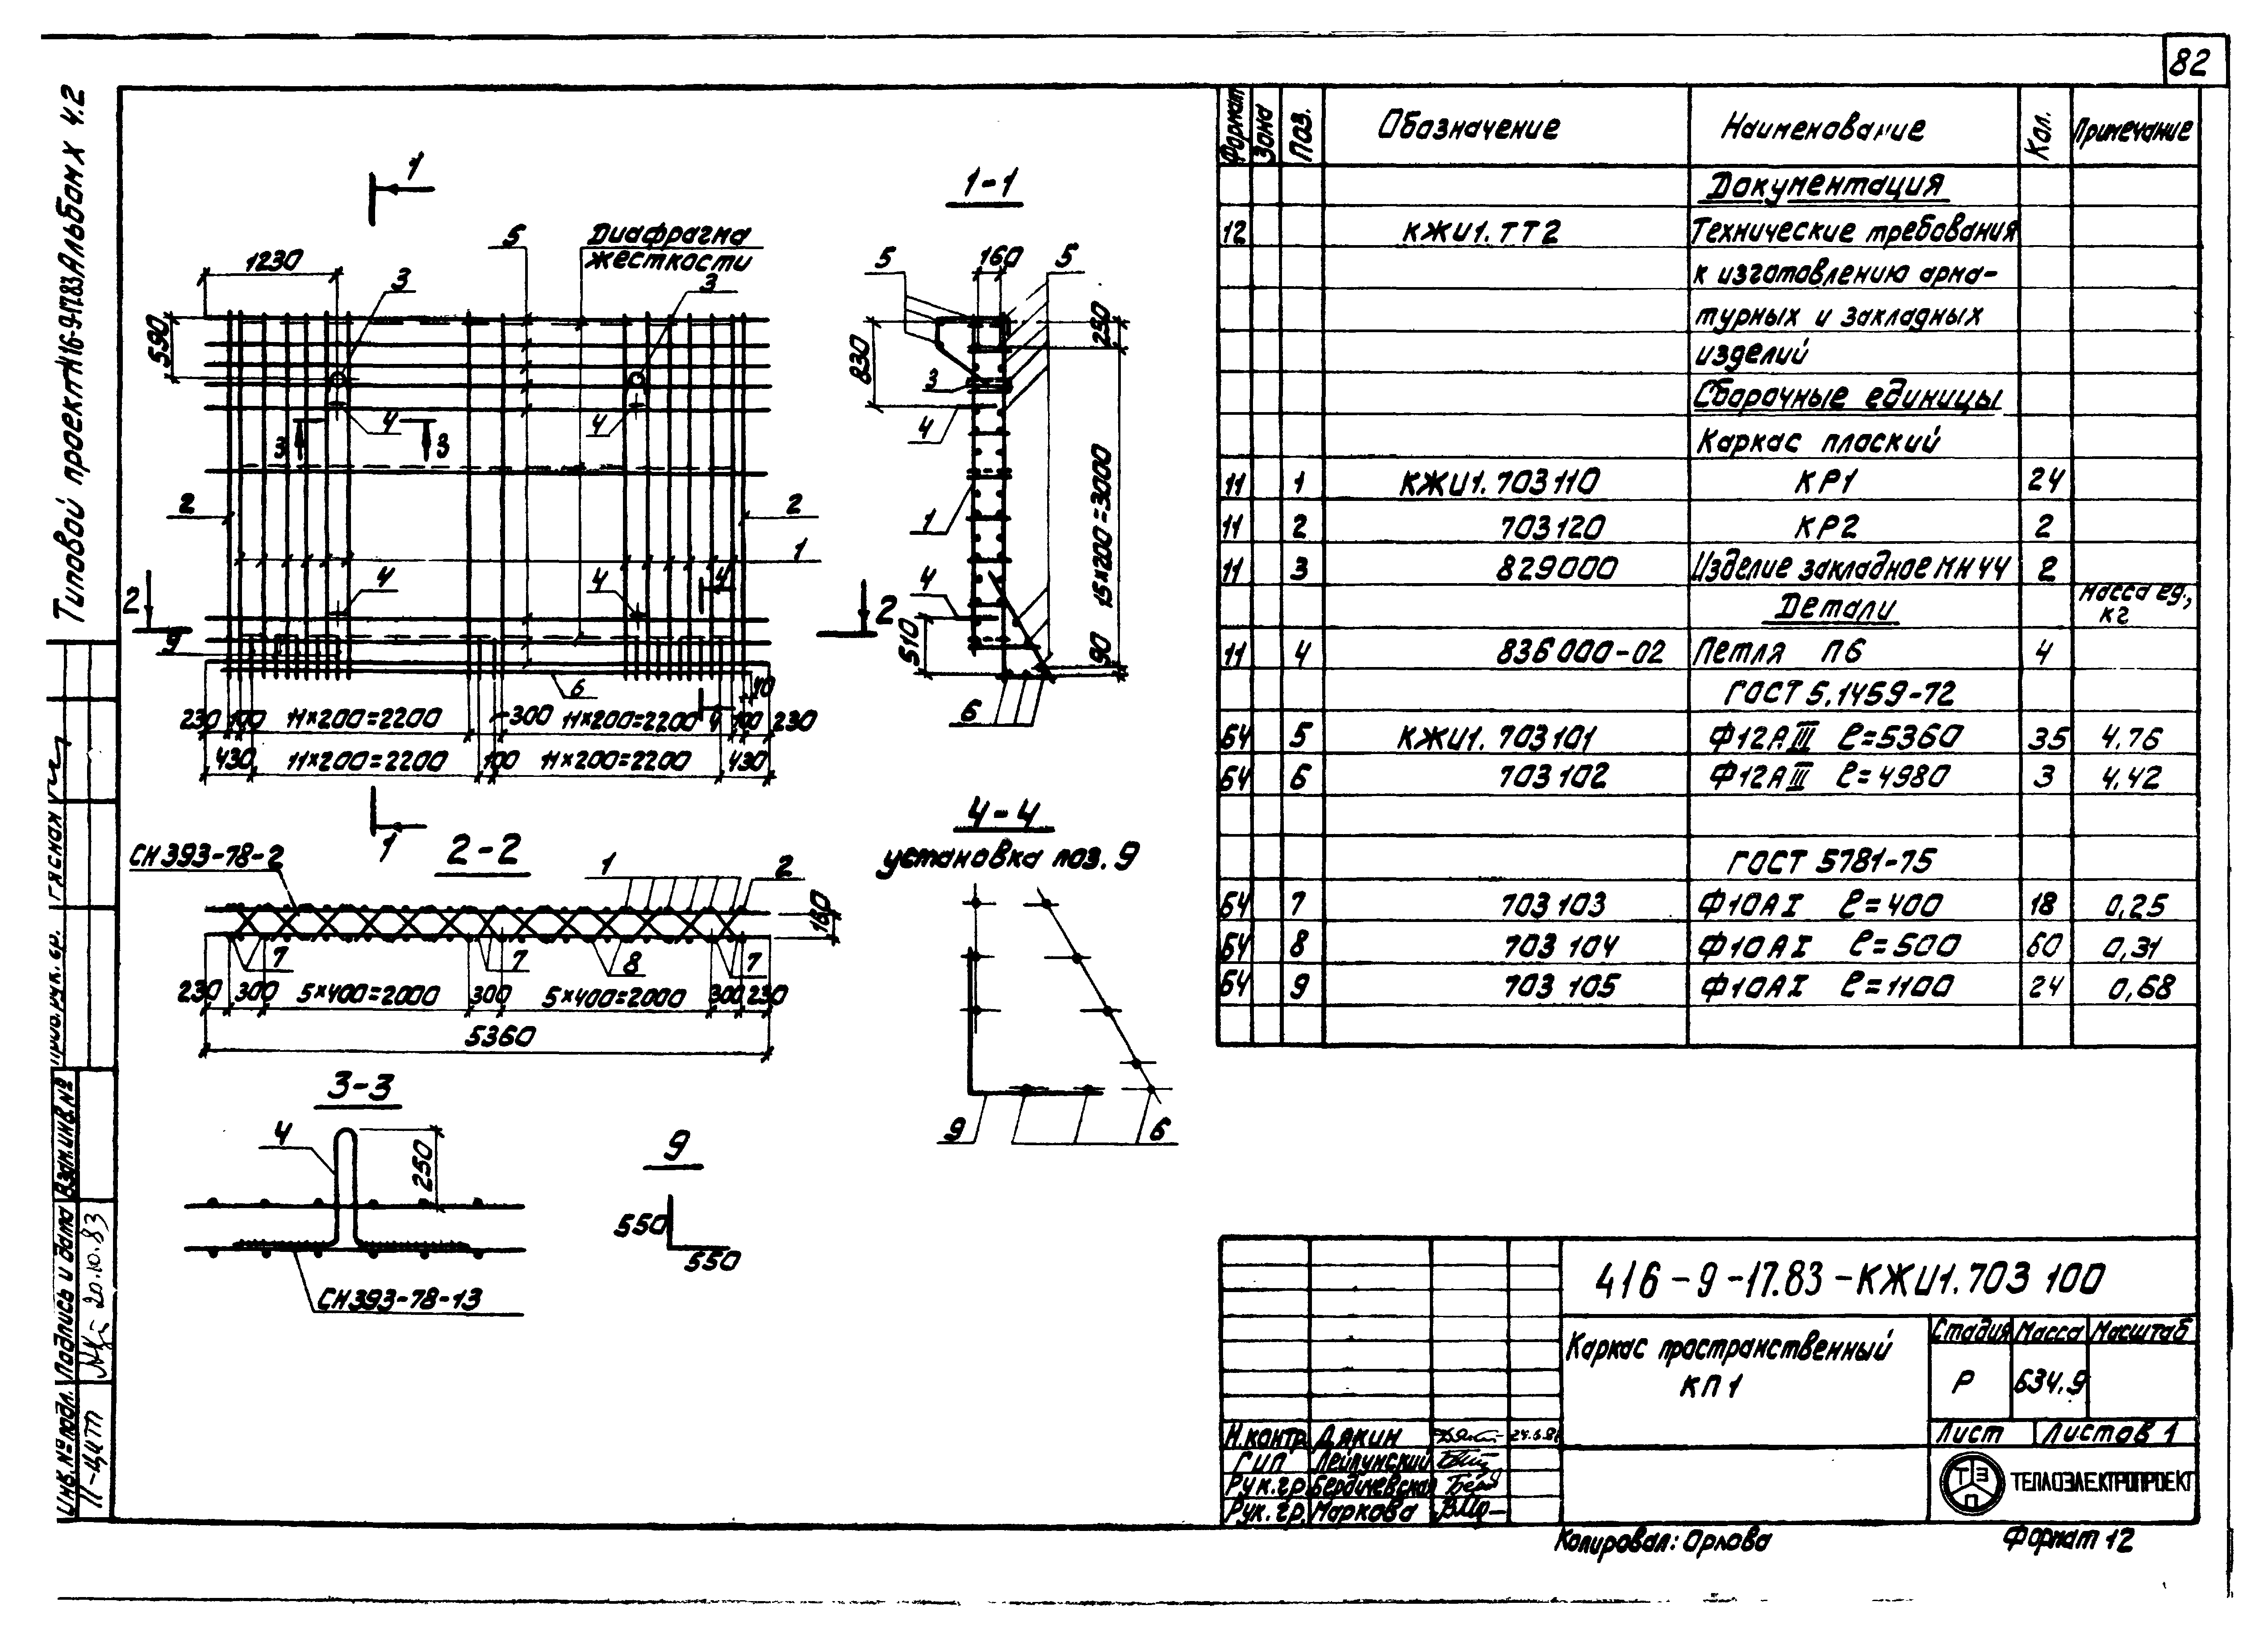 82
Типовой проект 416-9-17.83 Альбом X 4.2
1
1230
590
5
Диафрагма
жесткости
3
3
4
4
3
3
2
2
1
4
4
4
2
2
9
6
70
230 100 11×200=2200 300 11×200=2200 4 100 230
430 11×200=2200 100 11×200=2200 430
1
1-1
5
160
5
250
830
3
4
1
15×200=3000
4
510
90
6
2-2
СН393-78-2
1
2
160
7
7
8
7
230 300 5×400=2000 300 5×400=2000 300 230
5360
4-4
установка поз. 9
9
6
3-3
4
250
СН393-78-13
9
550
550
Формат Зона Поз. Обозначение Наименование Кол. Примечание
Документация
12 КЖИ1. ТТ2 Технические требования
к изготовлению арма-
турных и закладных
изделий
Сборочные единицы
Каркас плоский
11 1 КЖИ1. 703110 КР1 24
11 2 703120 КР2 2
11 3 829000 Изделие закладное МН44 2
Детали масса ед., кг
11 4 836000-02 Петля П6 4
ГОСТ 5.1459-72
Б4 5 КЖИ1. 703101 Ф12АIII ℓ=5360 35 4.76
Б4 6 703102 Ф12АIII ℓ=4980 3 4.42
ГОСТ 5781-75
Б4 7 703103 Ф10АI ℓ=400 18 0,25
Б4 8 703 104 Ф10АI ℓ=500 60 0,31
Б4 9 703 105 Ф10АI ℓ=1100 24 0,68
416-9-17.83-КЖИ1.703 100
Каркас пространственный
КП1
Стадия Масса Масштаб
Р 634,9
Лист Листов 1
ТЭП
ТЕПЛОЭЛЕКТРОПРОЕКТ
Н.контр. Дякин
ГИП Лейпунский
Рук.гр. Бердичевская
Рук.гр. Маркова
Копировал: Орлова
Формат 12
Пров. рук. гр. Гясная
Взам.инв.№
Подпись и дата
20.10.83
Инв.№ подл.